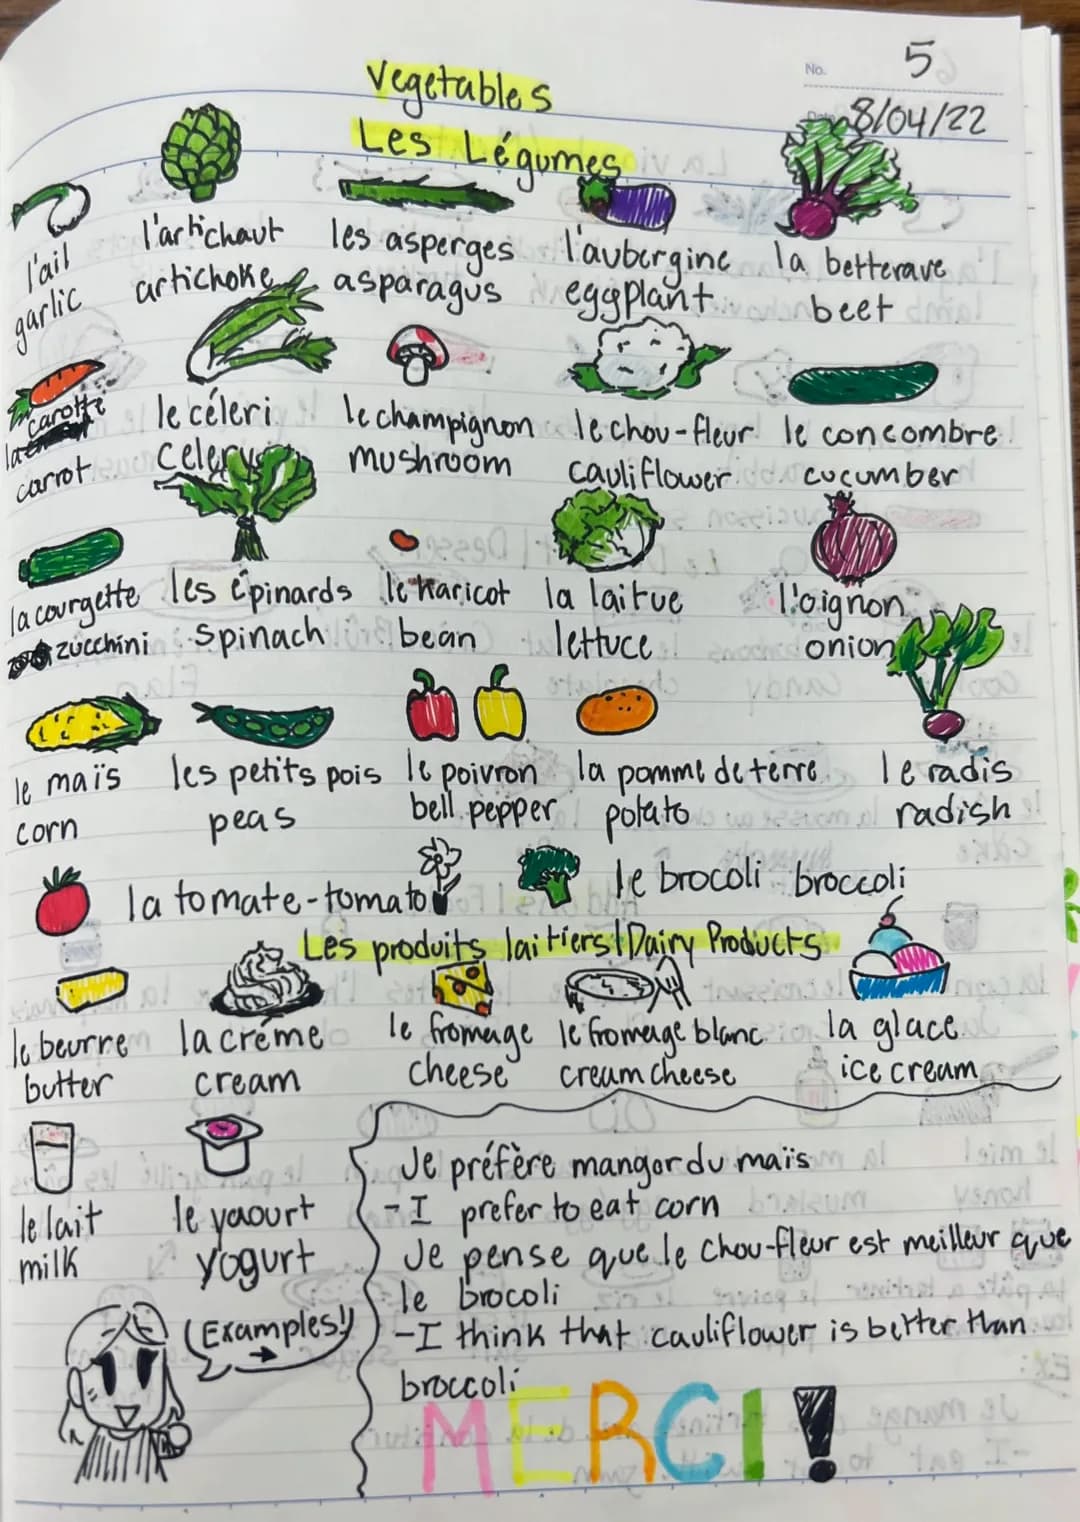 No. 5
8/04/22
Vegetables
Les Légumes
l'ail l'artichaut les asperges l'aubergine la betterave
garlic artichoke asparagus eggplant beet
la carotte le céleri le champignon le chou-fleur le concombre
carrot Celery mushroom cauliflower cucumber
la courgette les épinards le haricot la laitue l'oignon
zucchini spinach bean lettuce onion
le maïs les petits pois le poivron la pomme de terre le radis
corn peas bell pepper potato radish
la tomate-tomato le brocoli broccoli
Les produits laitiers | Dairy Products
le beurre la créme le fromage le fromage blanc la glace
butter cream cheese cream cheese ice cream
le lait le yaourt
milk yogurt
(Examples!)
Je préfère mangor du maïs
-I prefer to eat corn
Je pense que le chou-fleur est meilleur que
le brocoli
-I think that cauliflower is better than
broccoli
MERCI!